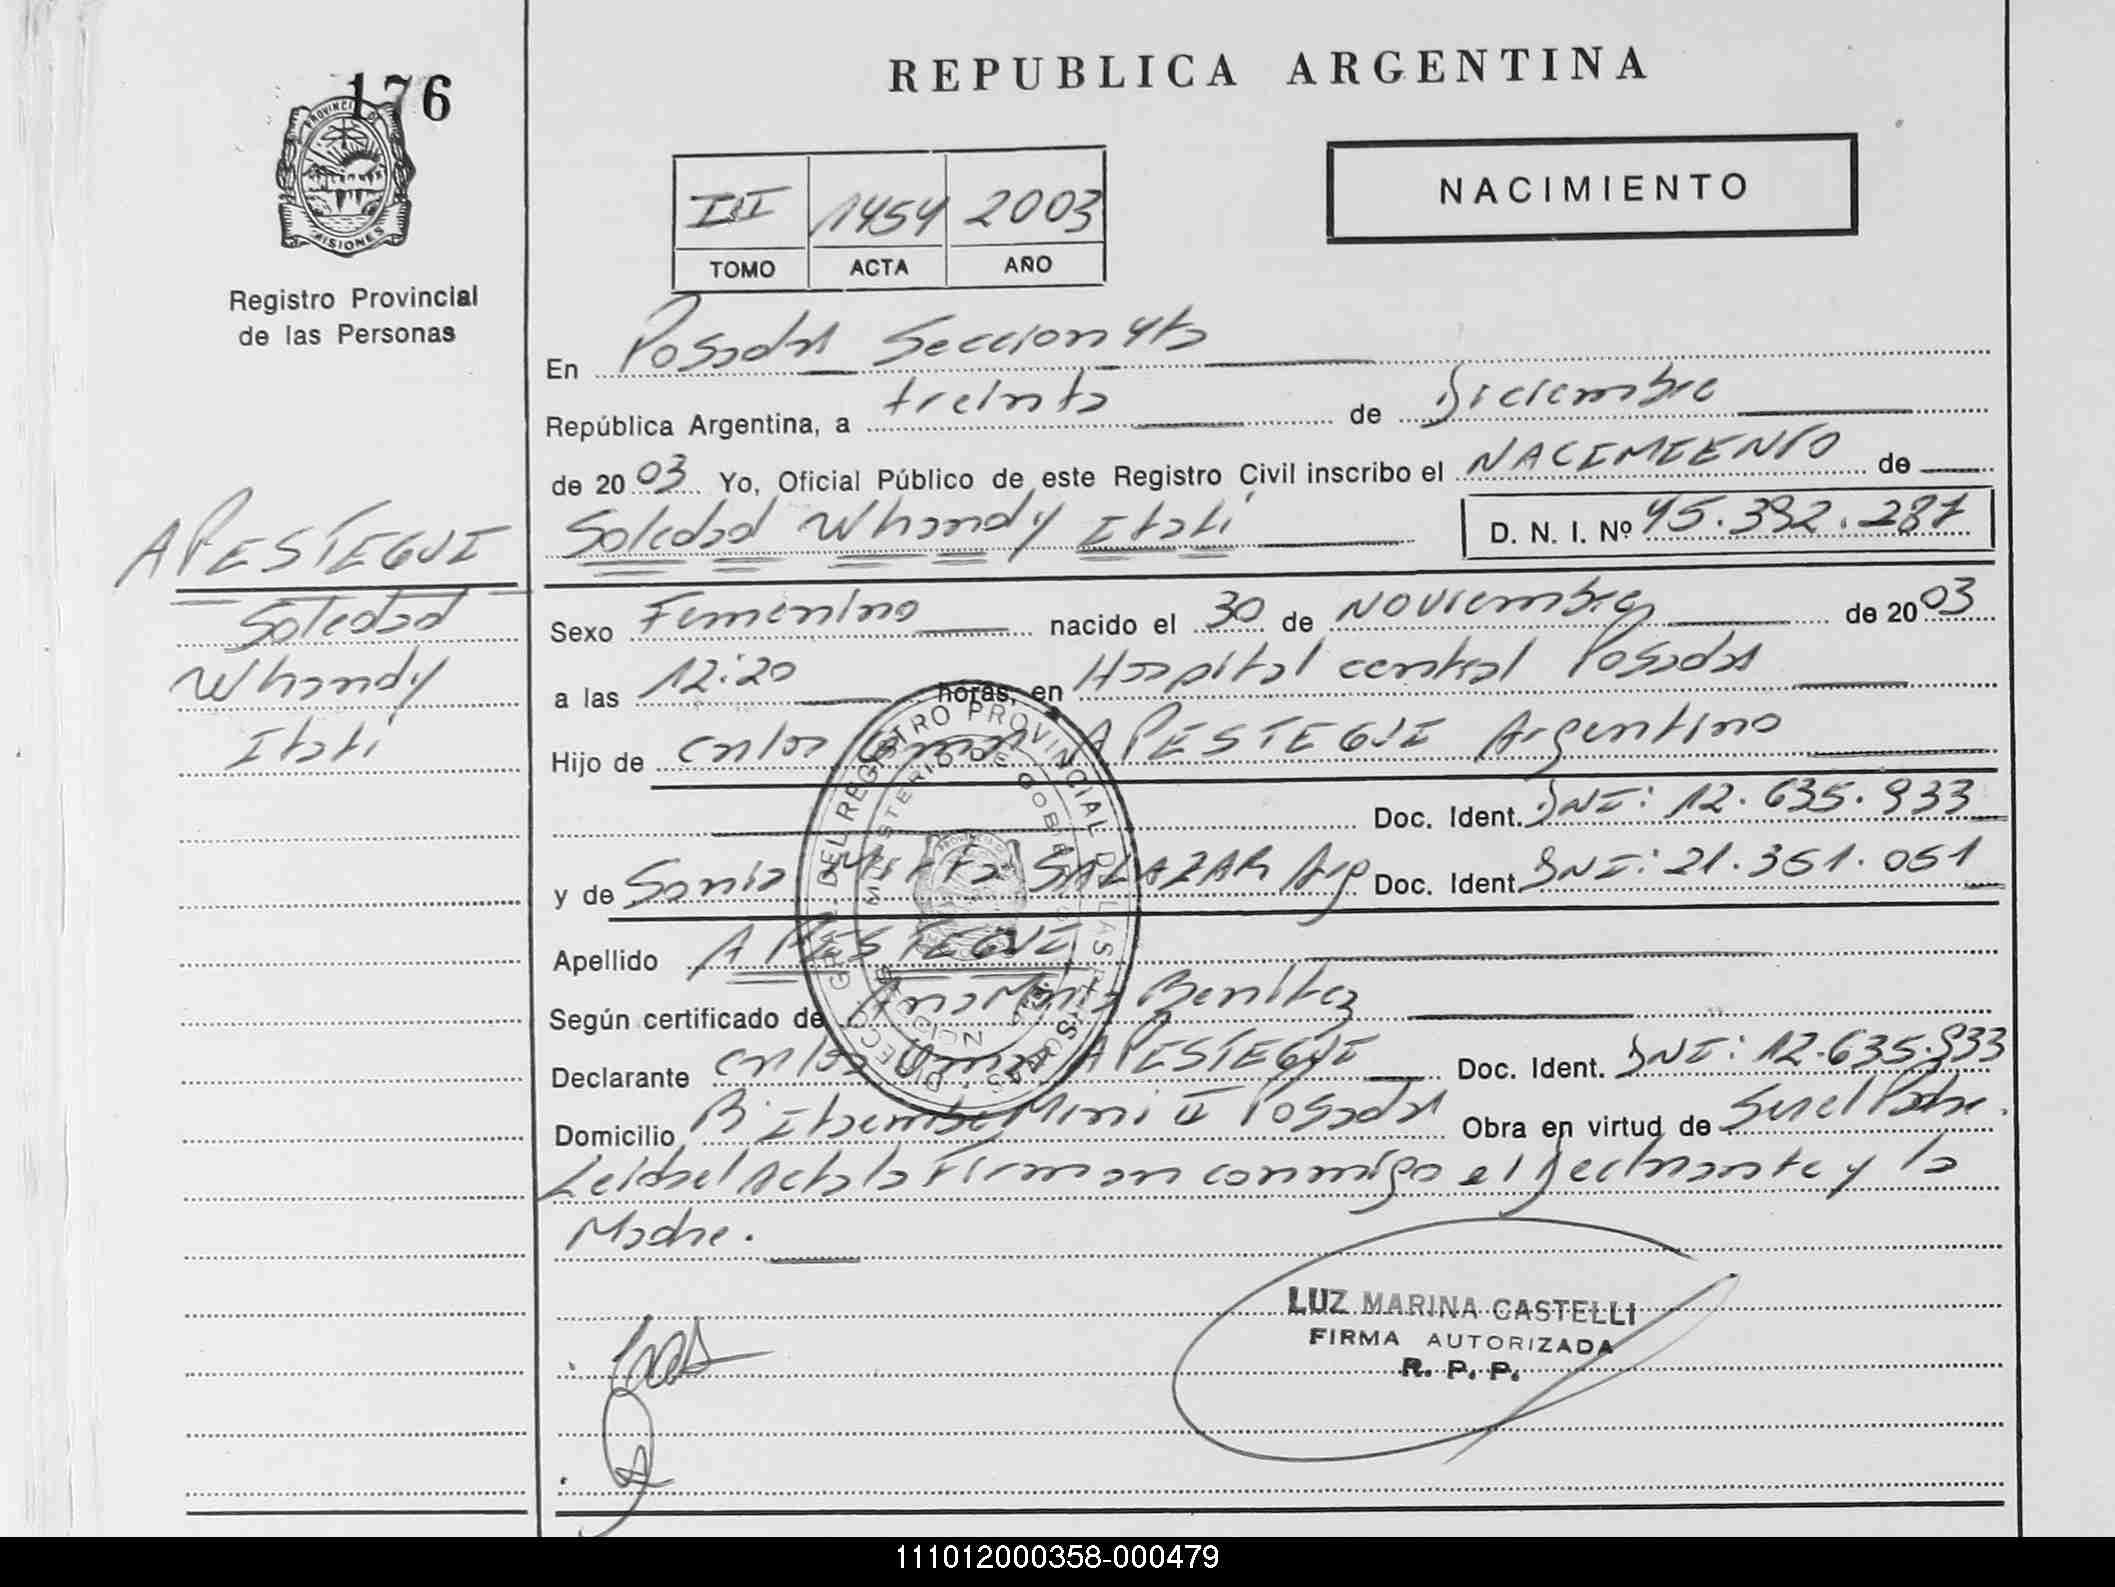 REPUBLICA ARGENTINA
176
PROVINCIA DE MISIONES
Registro Provincial
de las Personas
NACIMIENTO
III 1454 2003
TOMO ACTA AÑO
En Posadas Seccion 4ta
República Argentina, a treinta de Diciembre
de 2003 Yo, Oficial Público de este Registro Civil inscribo el NACIMIENTO de
APESTEGUI
Soledad
Whandy
Itati
Soledad Whandy Itati D. N. I. Nº 45.392.287
Sexo Femenino nacido el 30 de Noviembre de 2003
a las 12:20 horas, en Hospital central Posadas
Hijo de Carlos Omar APESTEGUI Argentino
Doc. Ident. DNI: 12.635.933
y de Sonia Mirta SALAZAR Arg Doc. Ident DNI: 21.361.051
Apellido APESTEGUI
Según certificado de Ana María Benítez
Declarante Carlos Omar APESTEGUI Doc. Ident. DNI: 12.635.933
Domicilio Bº Itaembe Mini II Posadas Obra en virtud de Ser el Padre.
Leida el Acta la Firman conmigo el Declarante y la
Madre.
LUZ MARINA CASTELLI
FIRMA AUTORIZADA
R. P. P.
111012000358-000479